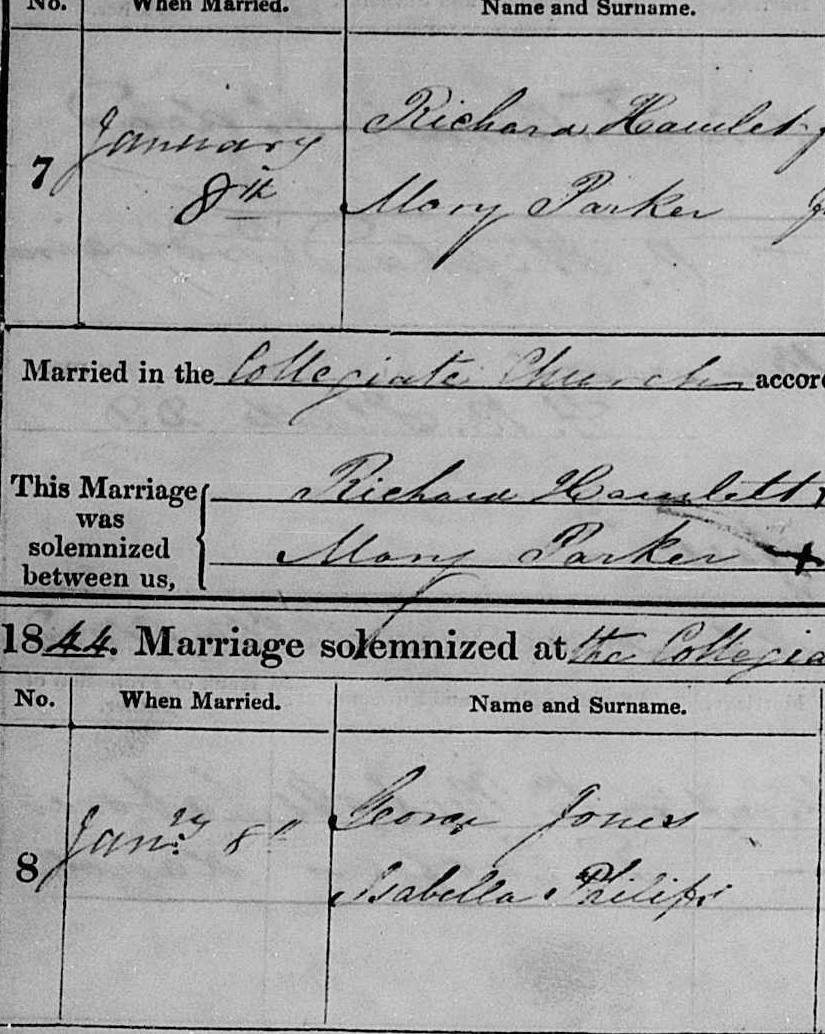 No. When Married. Name and Surname.
7 January 8th Richard Hamlet
Mary Parker
Married in the Collegiate Church accor
This Marriage was solemnized between us,
Richard Hamlett
Mary Parker
1844. Marriage solemnized at the Collegia
No. When Married. Name and Surname.
8 Jany. 8" George Jones
Isabella Philips